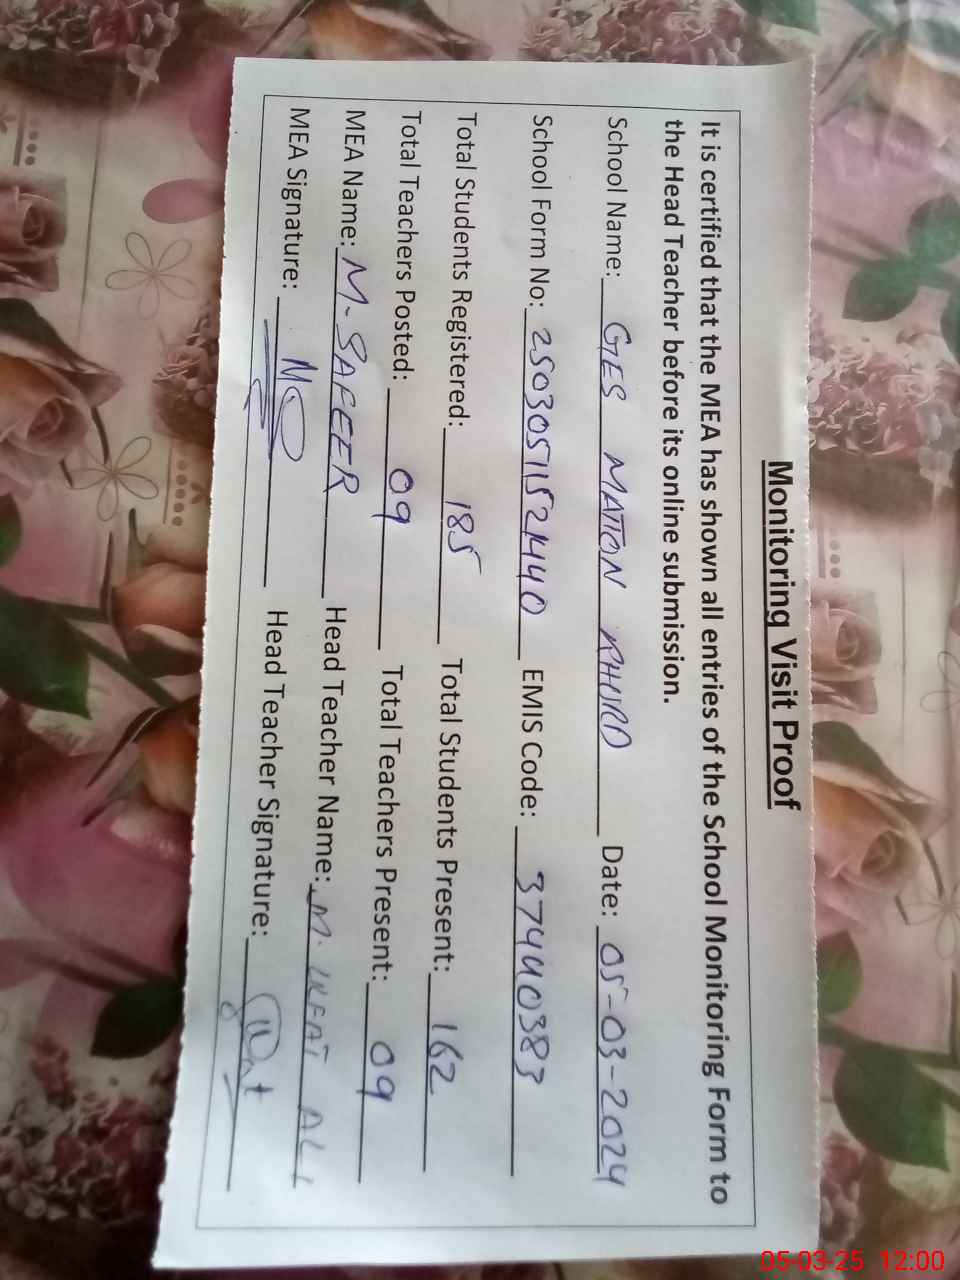 Monitoring Visit Proof
It is certified that the MEA has shown all entries of the School Monitoring Form to
the Head Teacher before its online submission.
School Name: GES MATTON KHURD Date: 05-03-2024
School Form No: 25030511521440 EMIS Code: 37440383
Total Students Registered: 185 Total Students Present: 162
Total Teachers Posted: 09 Total Teachers Present: 09
MEA Name: M-SAFEER Head Teacher Name: M. ALI
MEA Signature: Head Teacher Signature:
05-03-25 12:00